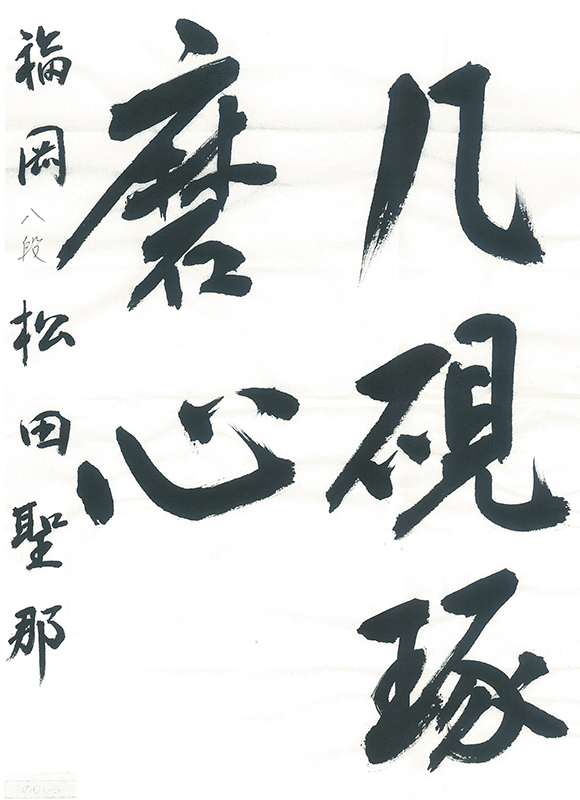 几硯琢
磨心
福岡八段松田聖那